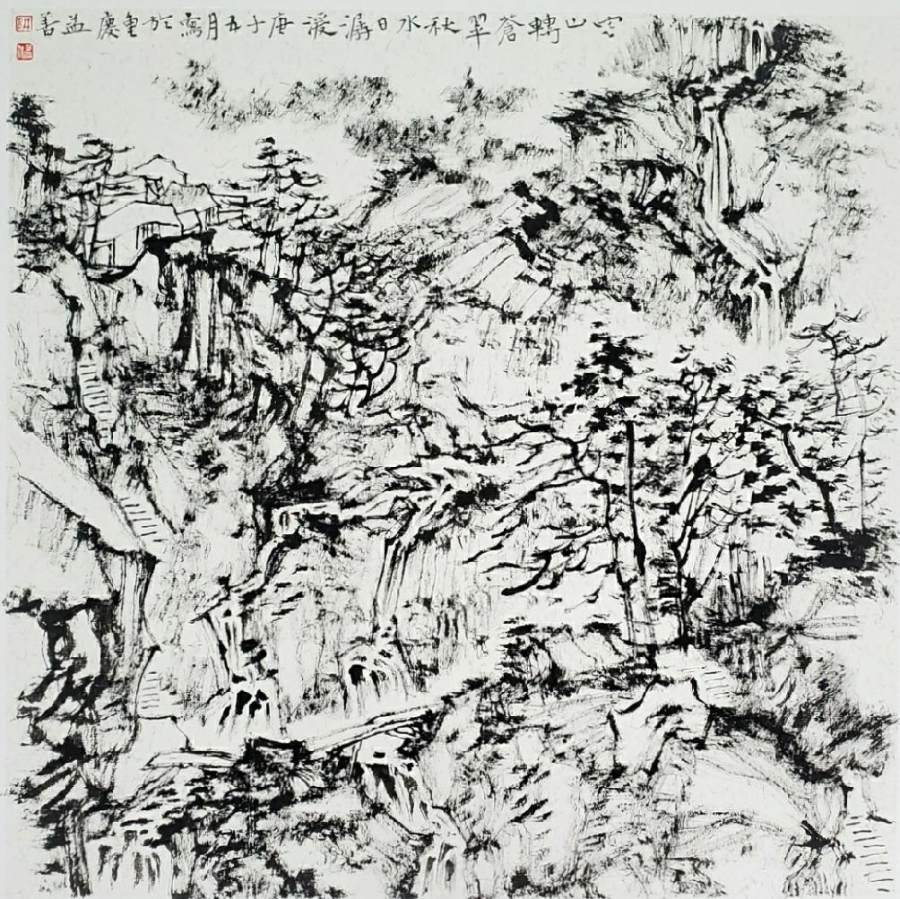 空山轉蒼翠秋水日潺湲庚子五月寫於重慶益善